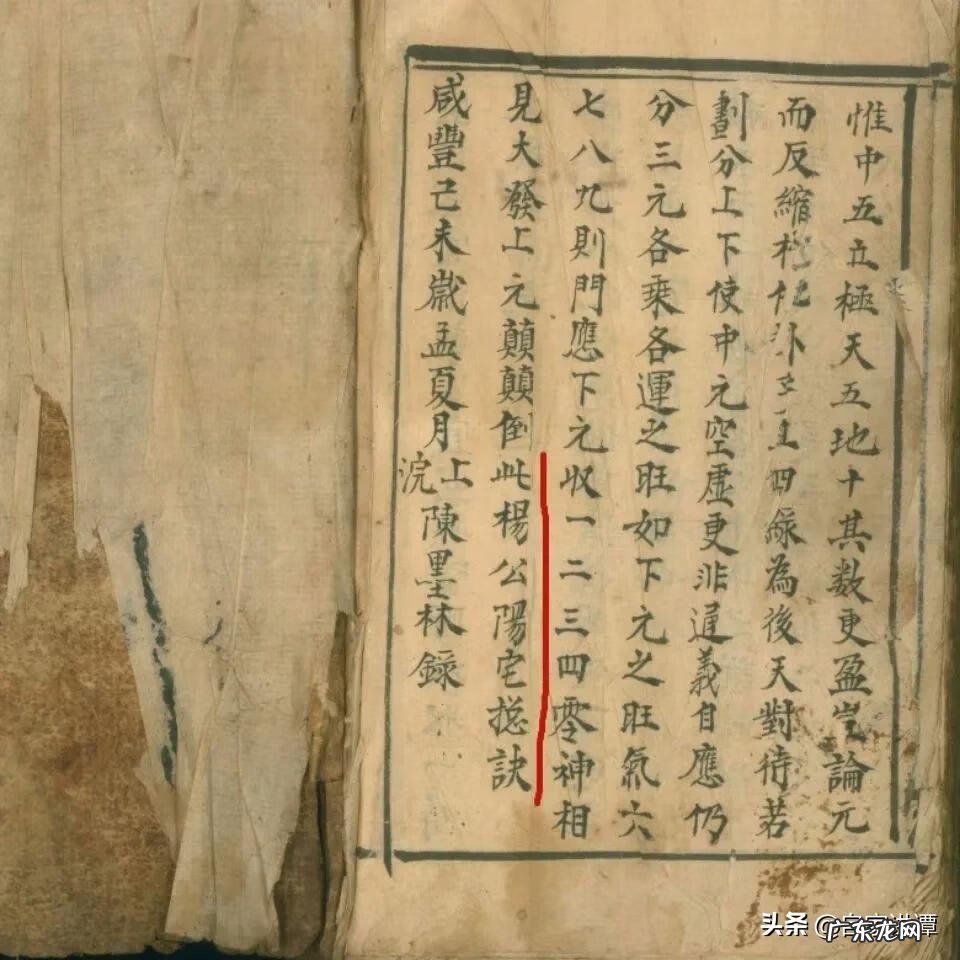 惟中五立極天五地十其数更盈豈論元
而反縮於他卦主四綠為後天對待若
劃分上下使中元空虛更非通義自應仍
分三元各乘各運之旺如下元之旺氣六
七八九則門應下元收一二三四零神相
見大發上元顛顛倒此楊公陽宅捴訣
咸豐己未歲孟夏月上浣陳墨林錄
头条
广东龙网